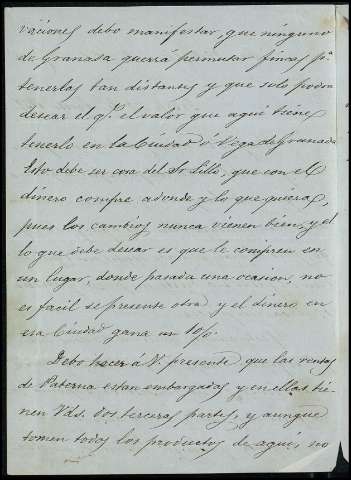 vaciones debo manifestar, que ninguno
de Granada querrá permutar fincas pr.
tenerlas tan distantes y que solo podrá
desear el qe. el valor que aqui tiene
tenerlo en la Ciudad ó Vega de Granada
Esto debe ser cosa del Sr Lillo, que con el
dinero compre adonde y lo que quiera,
pues los cambios nunca vienen bien, y el
lo que debe desear es que le compren en
un lugar, donde pasada una ocasion, no
es facil se presente otra y el dinero en
esa Ciudad gana un 10%.
Debo hacer á V. presente, que las rentas
de Paterna estan embargadas y en ellas tie-
nen Vds. dos terceras partes, y aunque
tomen todos los productos de aquí, no